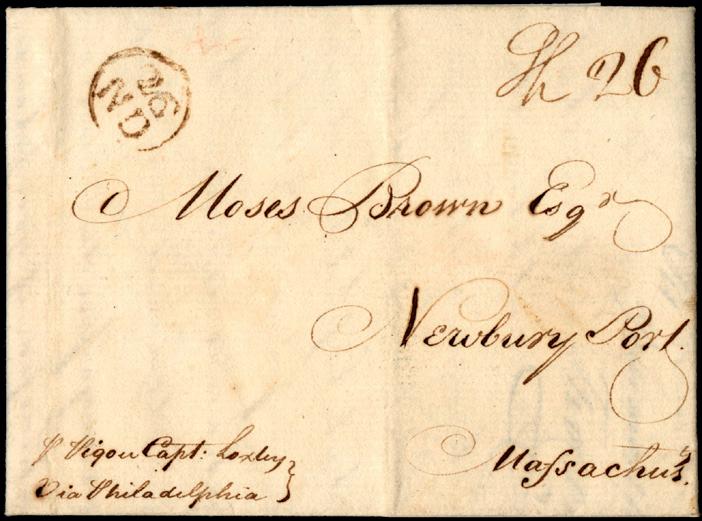 26
ND
Sh 26
Moses Brown Esqr
Newbury Port.
Massachus.
P Vigou Capt: Loxley
Via Philadelphia